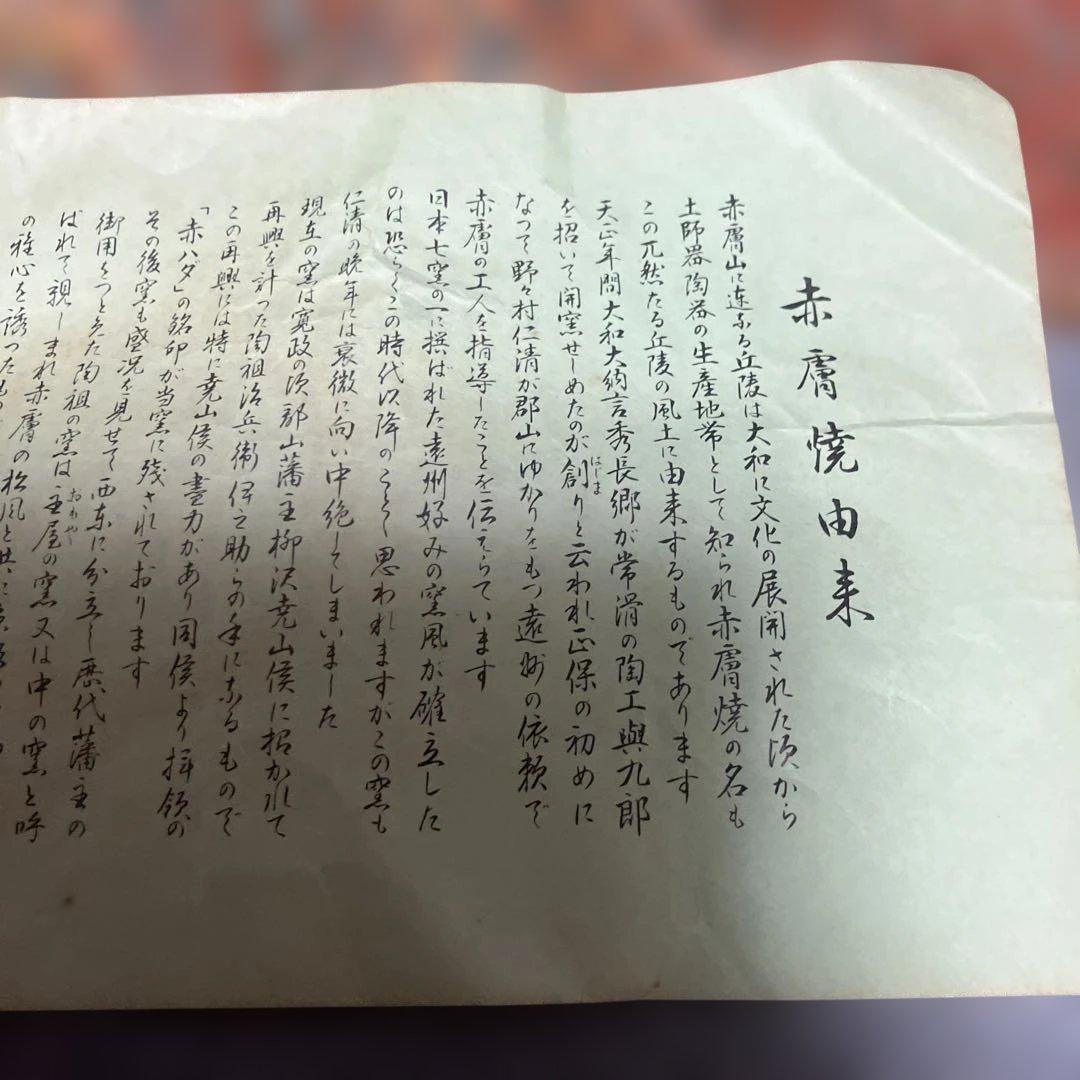 赤膚焼由来
赤膚山に連なる丘陵は大和に文化の展開された頃から
土師器陶器の生産地帯として知られ赤膚焼の名も
この兀然たる丘陵の風土に由来するものであります
天正年間大和大納言秀長郷が常滑の陶工與九郎
を招いて開窯せしめたのが創りと云われ正保の初めに
はじま
なつて野々村仁清が郡山にゆかりをもつ遠州の依頼で
赤膚の工人を指導したことを伝えらています
日本七窯の一に撰ばれた遠州好みの窯風が確立した
のは恐らくこの時代以降のことゝ思われますがこの窯も
仁清の晩年には衰微に向い中絶してしまいました
現在の窯は寛政の頃郡山藩主柳沢尭山侯に招かれて
再興を計った陶祖治兵衛伊之助らの手になるもので
この再興には特に尭山侯の盡力があり同侯より拝領の
「赤ハダ」の銘印が当窯に残されております
その後窯も盛況を見せて西東に分立し歴代藩主の
御用をつとめた陶祖の窯は主屋の窯又は中の窯と呼
おもや
ばれて親しまれ赤膚の松風と共に
の雅心を誘ったもの